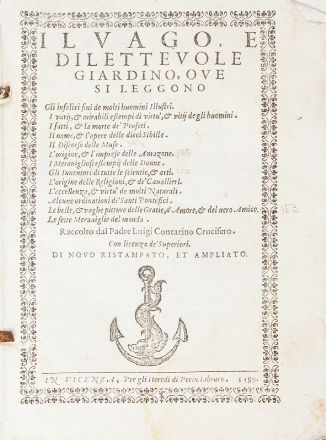 IL VAGO, E
DILETTEVOLE
GIARDINO, OVE
SI LEGGONO
Gli infelici fini de molti huomini Illustri.
I varij, & mirabili essempi di virtù, & vitij degli huomini.
I fatti, & la morte de' Profeti.
I nomi, & l'opere delle dieci Sibille.
Il Discorso delle Muse.
L'origini, & l'imprese delle Amazone.
I Meravigliosi essempij delle Donne.
Gli Inuentori di tutte le scientie, & arti.
L'origine delle Religioni, & de' Cauallieri.
L'eccellenza, & virtù de molti Naturali.
Alcune ordinationi de' Santi Pontefici.
Le belle, & vaghe pitture delle Gratie, d'Amore, & del uero Amico.
Le sette Merauiglie del mondo.
Raccolto dal Padre Luigi Contarino Crucifero.
Con licenza de' Superiori.
DI NOVO RISTAMPATO, ET AMPLIATO.
IN VICENZA, Per gli Heredi di Perin Libraro.